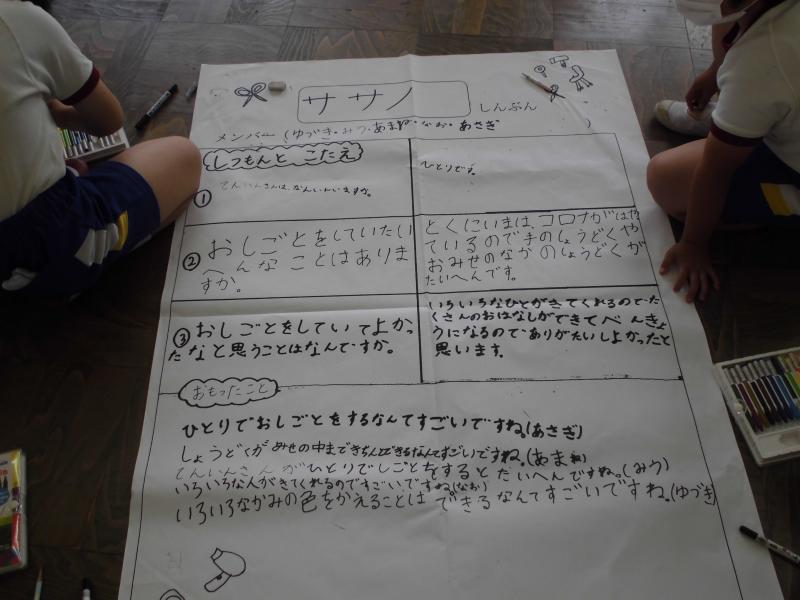 ササノ しんぶん
メンバー (ゆづき・みう・あまね・なお・あさぎ )
しつもんと こたえ
① てんいんさんは、なんにんいますか。
ひとりです。
② おしごとをしていたい
へんな ことはありま
すか。
とくにいまは、コロナがはや
ているので手のしょうどくや
おみせのなかのしょうどくが
たいへんです。
③ おしごとをしていてよかっ
たなと思うことはなんですか。
いろいろなひとがきてくれるのでた
くさんのおはなしができてべんきょ
うになるのでありがたいしよかったと
思います。
おもったこと
ひとりでおしごとをするなんてすごいですね。(あさぎ)
しょうどくがみせの中まできちんとできるなんてすごいですね。(あまね)
てんいんさんがひとりでしごとをするとたいへんですね。(みう)
いろいろな人がきてくれるのですごいですね。(なお)
いろいろなかみの色をかえることはできるなんてすごいですね。(ゆづき)